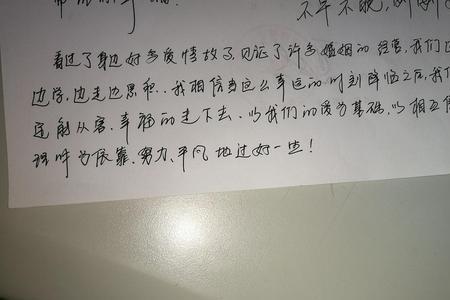 不早不晚,刚刚
看过了身边好多爱情故事,见证了许多婚姻的经营,我们
边学,边走边思考..我相信当这么幸运的时刻降临之后,我们
定能从容、幸福的走下去.以我们的爱为基础,以相互
理呼为依靠.努力、平凡地过好一些!